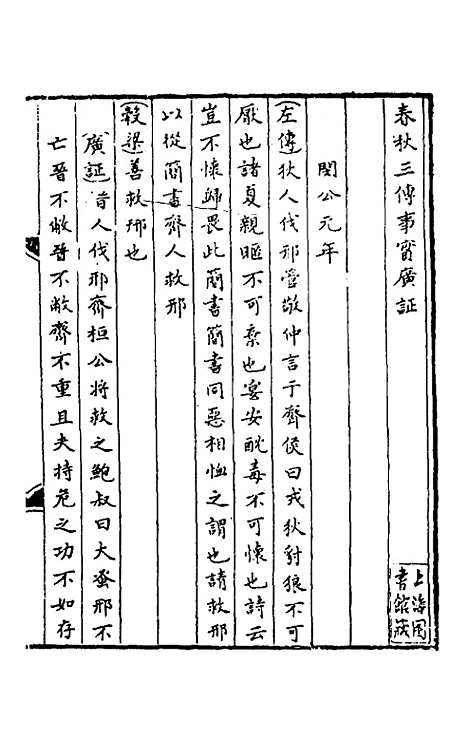 春秋三傳事實廣証
上海圖書館藏
閔公元年
左傳狄人伐邢管敬仲言于齊侯曰戎狄豺狼不可
厭也諸夏親暱不可棄也宴安酖毒不可懷也詩云
豈不懷歸畏此簡書簡書同惡相恤之謂也請救邢
以從簡書齊人救邢
穀梁善救邢也
廣証昔人伐邢齊桓公將救之鮑叔曰大蚤邢不
亡晉不敝晉不敝齊不重且夫持危之功不如存